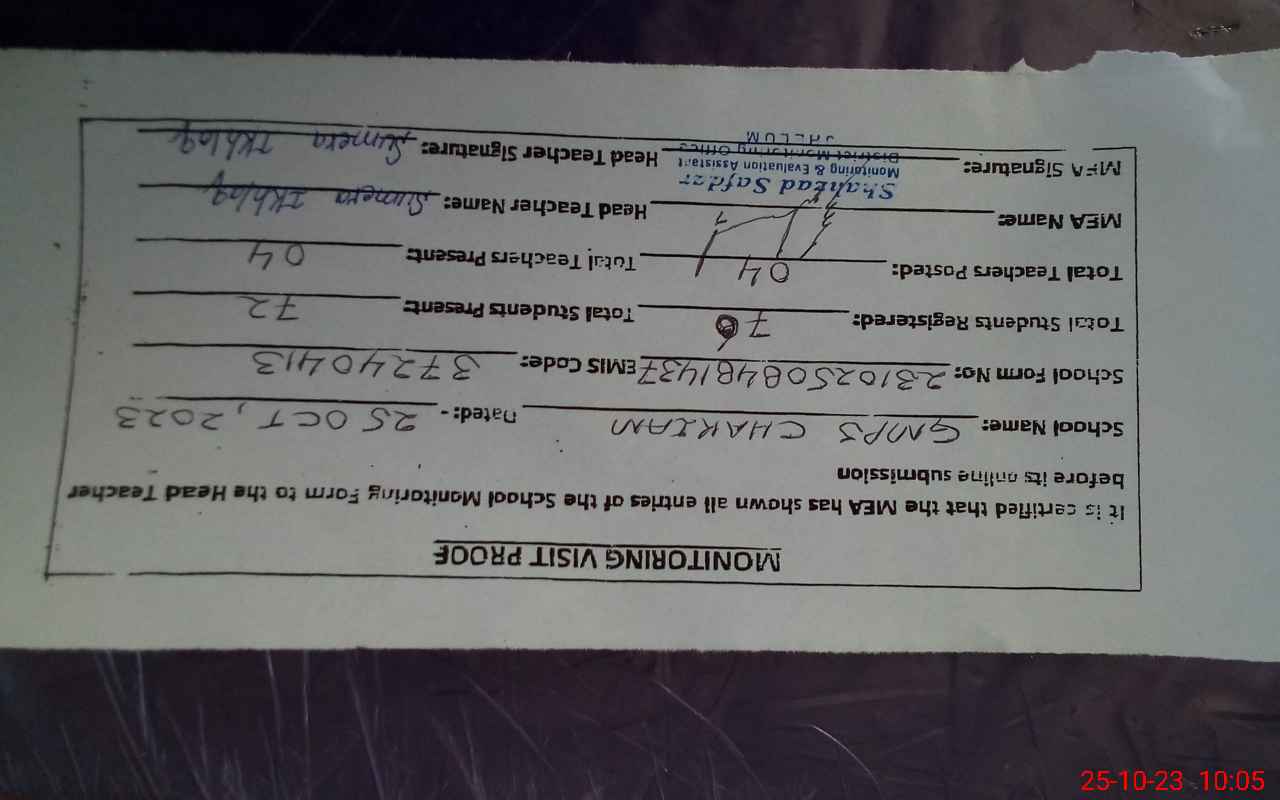 MONITORING VISIT PROOF
It is certified that the MEA has shown all entries of the School Monitoring Form to the Head Teacher
before its online submission
School Name: GMPS CHAKIAM Dated: - 25 OCT, 2023
School Form No: 23102508481437 EMIS Code: 37240413
Total Students Registered: 76 Total Students Present: 72
Total Teachers Posted: 04 Total Teachers Present: 04
MEA Name: Head Teacher Name: Sumera Ikhlaq
Shahzad Safdar
MEA Signature: Head Teacher Signature: Sumera Ikhlaq
Monitoring & Evaluation Assistant
District Monitoring Office
JHELUM
25-10-23 10:05